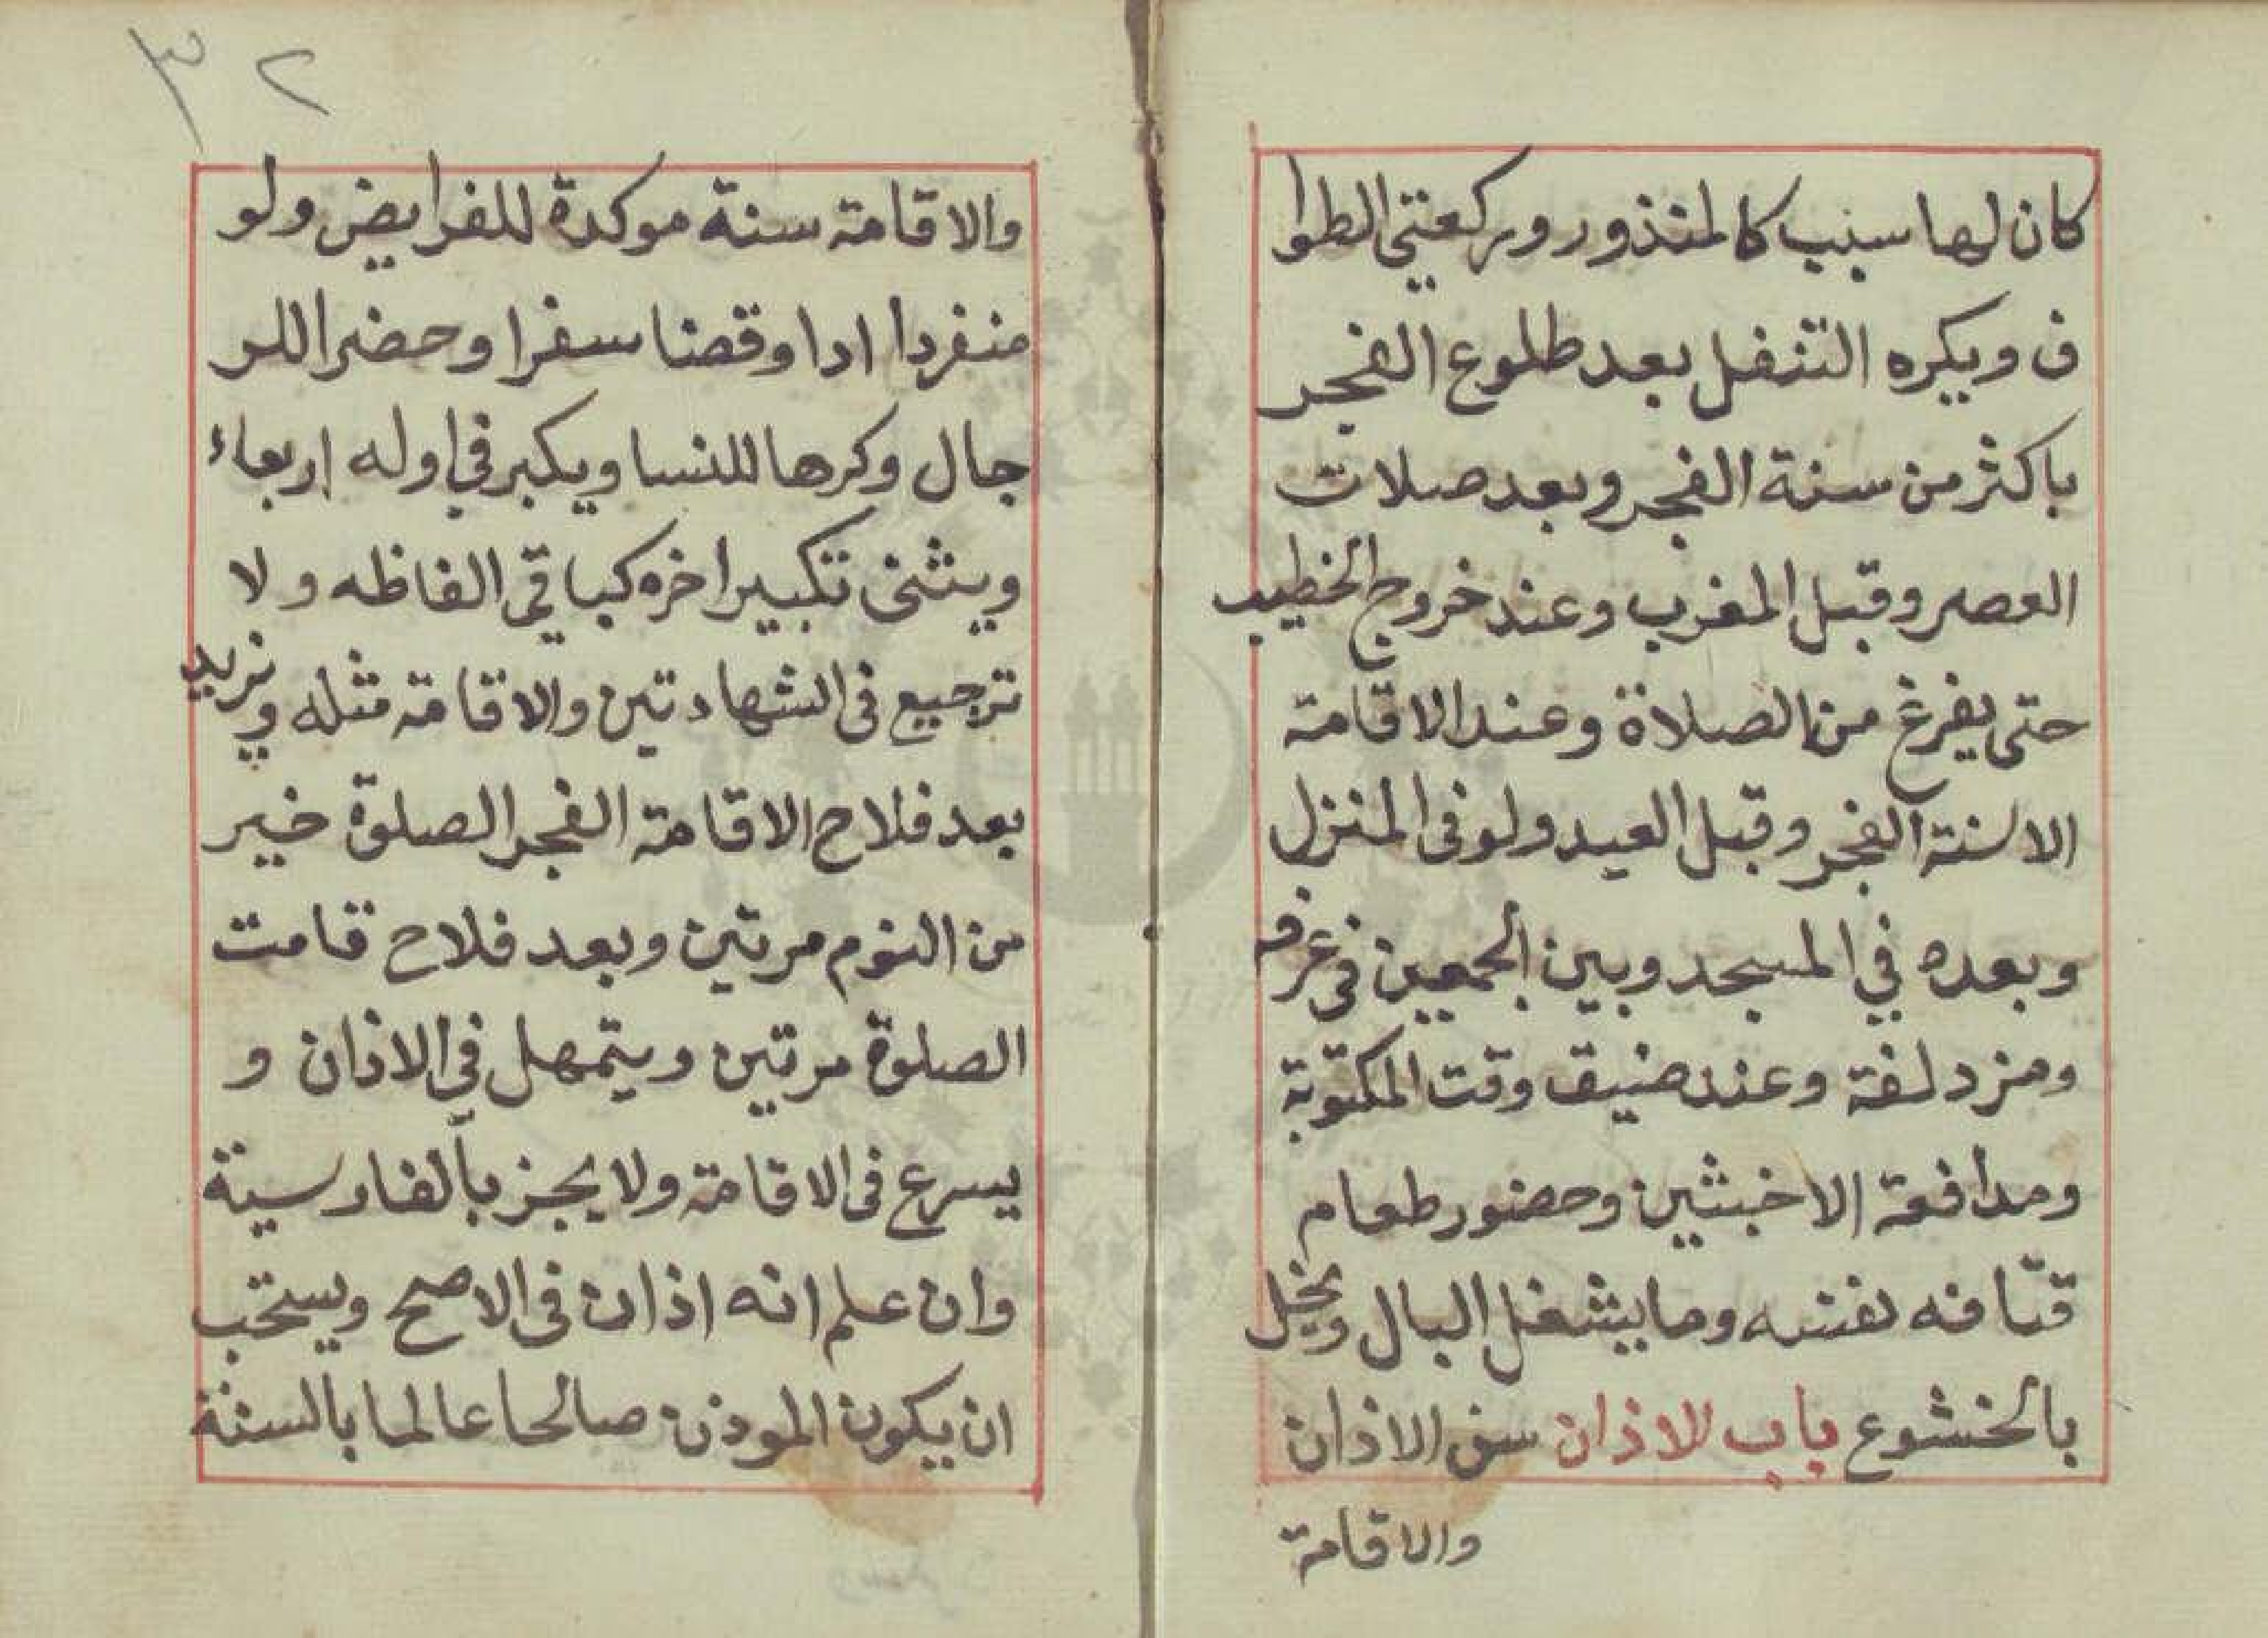 كان لها سبب كالمنذور وركعتي الطوا
ف ويكره التنفل بعد طلوع الفجر
باكثر من سنة الفجر وبعد صلات
العصر وقبل المغرب وعند خروج الخطيب
حتى يفرغ من الصلاة وعند الاقامة
الا سنة الفجر وقبل العيد ولو في المنزل
وبعده في المسجد وبين الجمعين في عرفه
ومزدلفة وعند ضيق وقت المكتوبة
ومدافعة الاخبثين وحضور طعام
قتافه نفسه وما يشغل البال ويخل
بالخشوع باب الاذان سن الاذان
والاقامة
٣٢
والاقامة سنة موكدة للفرايض ولو
منفردا ادا وقضا سفرا وحضرا للر
جال وكرها للنسا ويكبر في اوله اربعاء
ويثنى تكبير اخره كباقي الفاظه ولا
ترجيع في الشهادتين والاقامة مثله ويزيد
بعد فلاح الاقامة الفجر الصلوة خير
من النوم مرتين وبعد فلاح قامت
الصلوة مرتين ويتمهل في الاذان و
يسرع في الاقامة ولا يجز بالفارسية
وان علم انه اذان في الاصح ويستحب
ان يكون الموذن صالحا عالما بالسنة